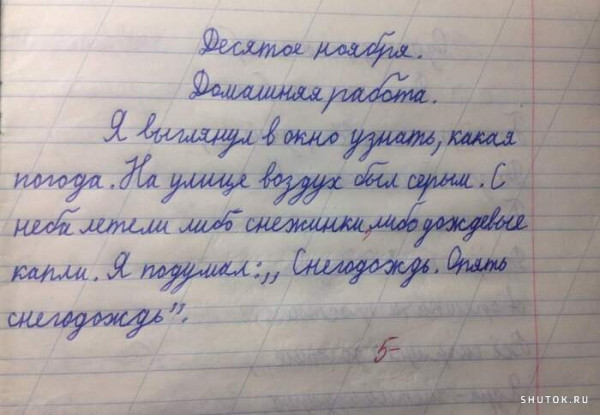 Десятое ноября.
Домашняя работа.
Я выглянул в окно узнать, какая
погода. На улице воздух был серым. С
неба летели либо снежинки, либо дождевые
капли. Я подумал: ,, Снегодождь. Опять
снегодождь".
5-
SHUTOK.RU